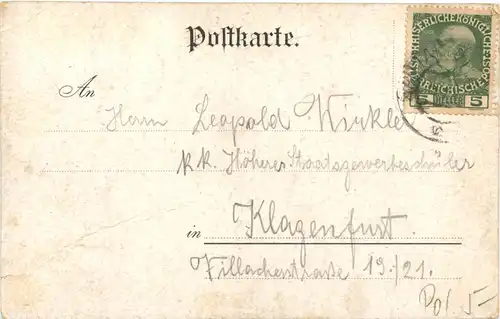 Postkarte.
KAISERLICHE KÖNIGLICHE ÖSTERREICHISCHE
5 HELLER 5
An
Herrn Leopold Winkler
k.k. Höherer Staatsgewerbeschüler
in Klagenfurt.
Villacherstraße 19./21.
Pol 5-